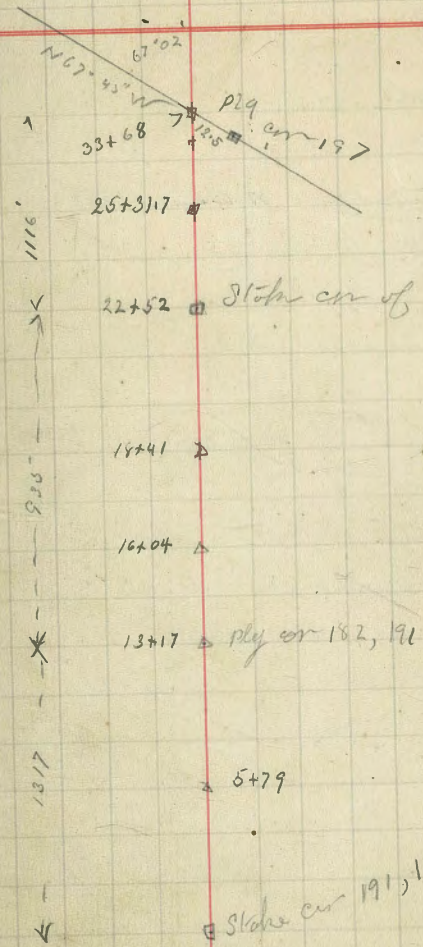 67°02
N 67° 43" W
Plg
33+68 7 12.5 cor 197
25+31.7
1116'
22+52 Stake cor of
18+41
935
16+04
13+17 plg cor 182, 191
1317
5+79
Stake cor 191, 1